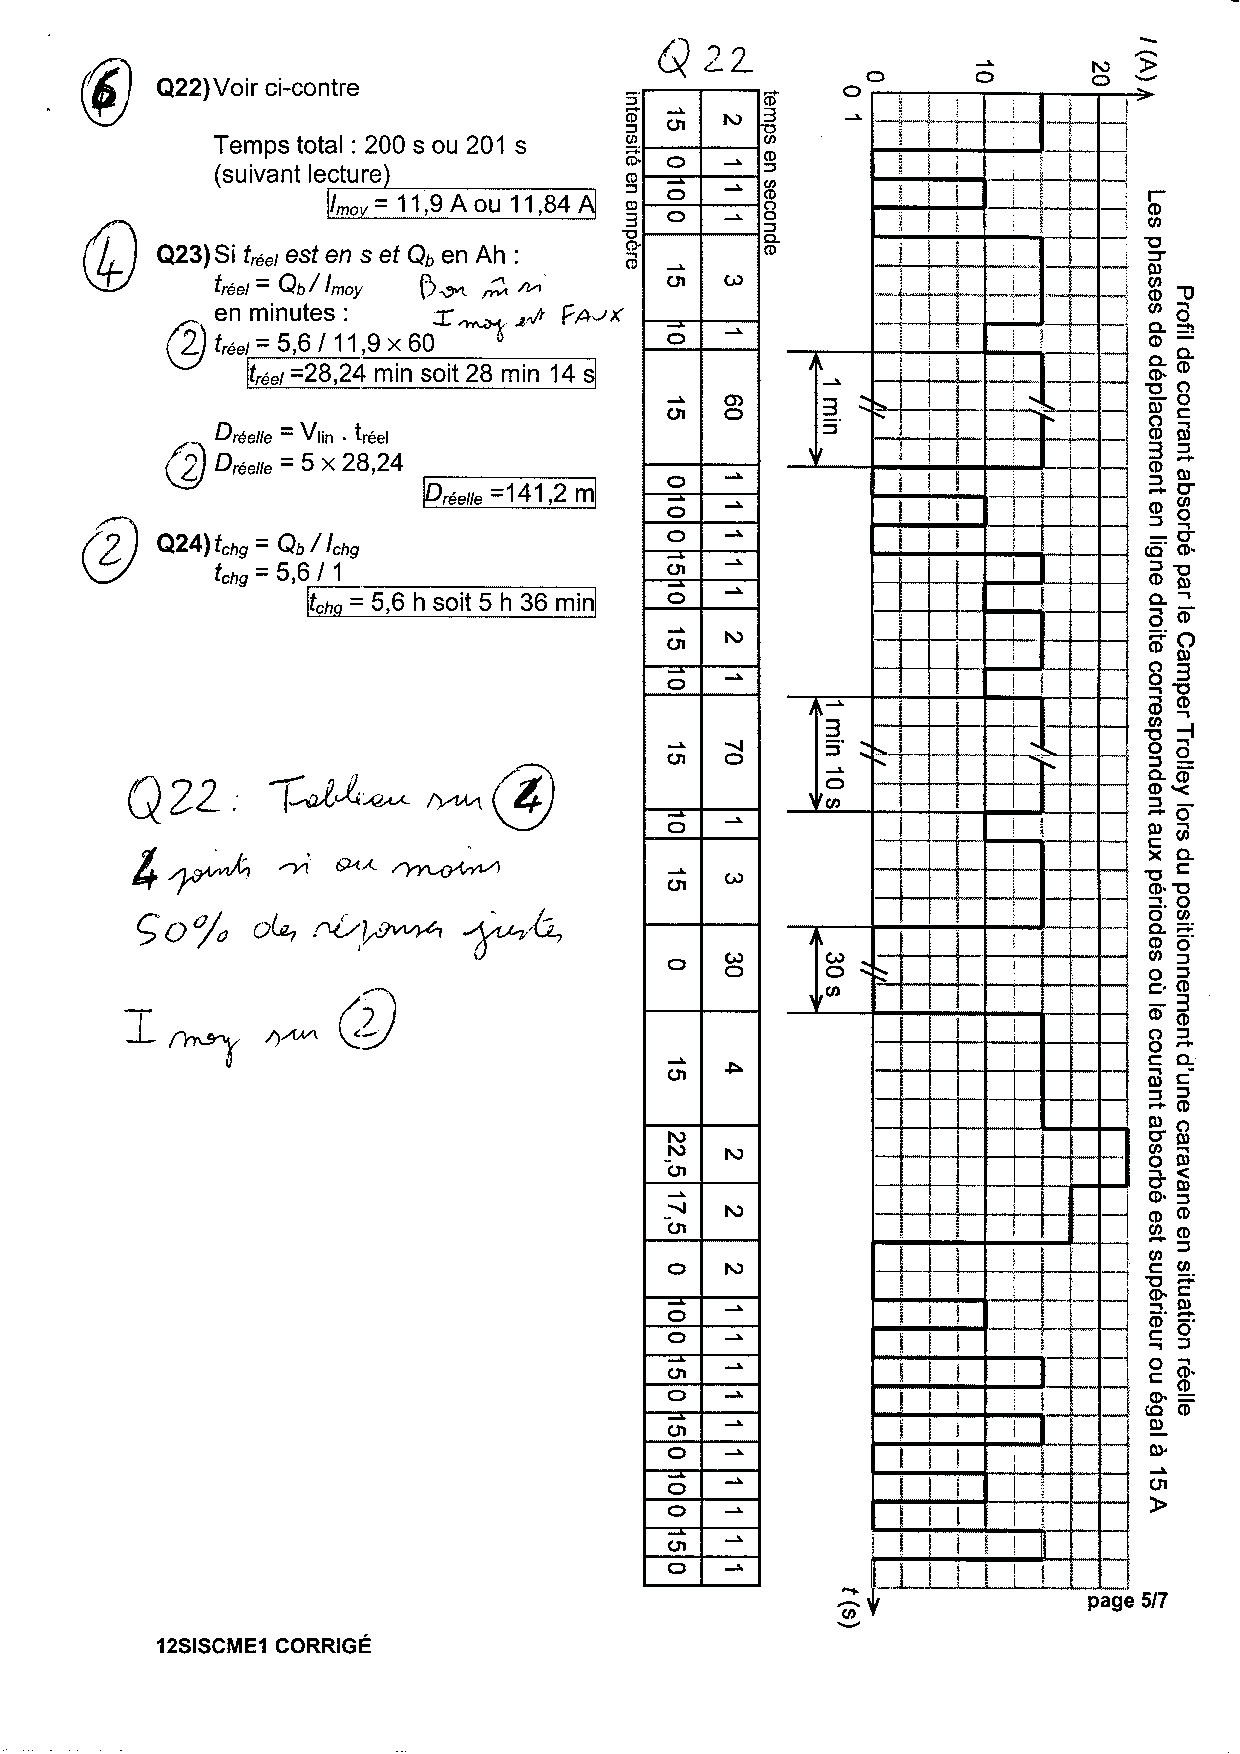 6
Q22) Voir ci-contre
Temps total : 200 s ou 201 s
(suivant lecture)
Imoy = 11,9 A ou 11,84 A
4
Q23) Si tréel est en s et Qb en Ah :
tréel = Qb / Imoy
Bon m̂ si
en minutes :
I moy est FAUX
2
tréel = 5,6 / 11,9 × 60
tréel =28,24 min soit 28 min 14 s
Dréelle = Vlin . tréel
2
Dréelle = 5 × 28,24
Dréelle =141,2 m
2
Q24) tchg = Qb / Ichg
tchg = 5,6 / 1
tchg = 5,6 h soit 5 h 36 min
Q22 : Tableau sur 4
4 points si au moins
50% des réponses justes
I moy sur 2
12SISCME1 CORRIGÉ
Q 22
temps en seconde
2 1 1 1 3 1 60 1 1 1 1 1 2 1 70 1 3 30 4 2 2 2 1 1 1 1 1 1 1 1 1 1
intensité en ampère
15 0 10 0 15 10 15 0 10 0 15 10 15 10 15 10 15 0 15 22,5 17,5 0 10 0 15 0 15 0 10 0 15 0
Profil de courant absorbé par le Camper Trolley lors du positionnement d'une caravane en situation réelle
Les phases de déplacement en ligne droite correspondent aux périodes où le courant absorbé est supérieur ou égal à 15 A
I (A)
20
10
0
0 1
1 min
1 min 10 s
30 s
t (s)
page 5/7